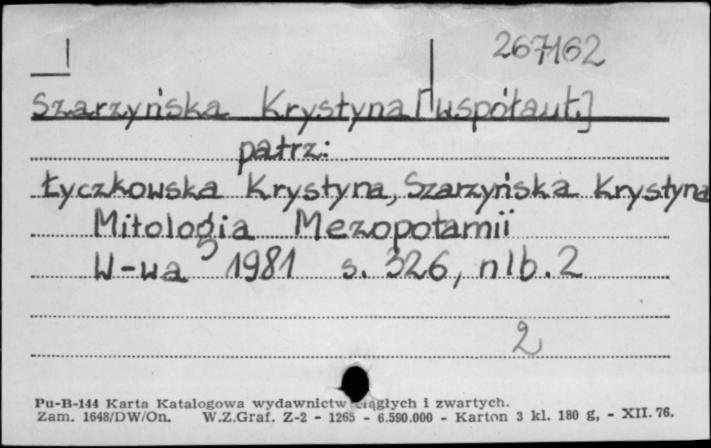 267162
Szarzyńska Krystyna [współaut.]
patrz:
Łyczkowska Krystyna, Szarzyńska Krystyna
Mitologia Mezopotamii
W-wa 1981 s. 326, nlb. 2
2
Pu-B-144 Karta Katalogowa wydawnictw ciągłych i zwartych.
Zam. 1648/DW/On. W.Z.Graf. Z-2 - 1265 - 6.590.000 - Karton 3 kl. 180 g, - XII. 76.